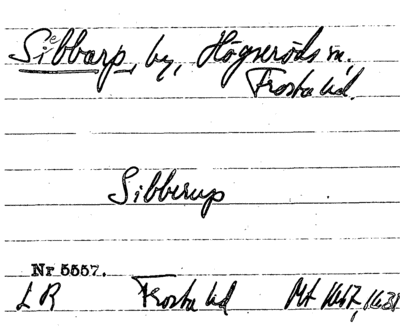 Sibbarp, by, Högseröds sn.
Frosta hd.
Sibberup
Nr 5557.
LR Frosta hd Mt 1617, 1631